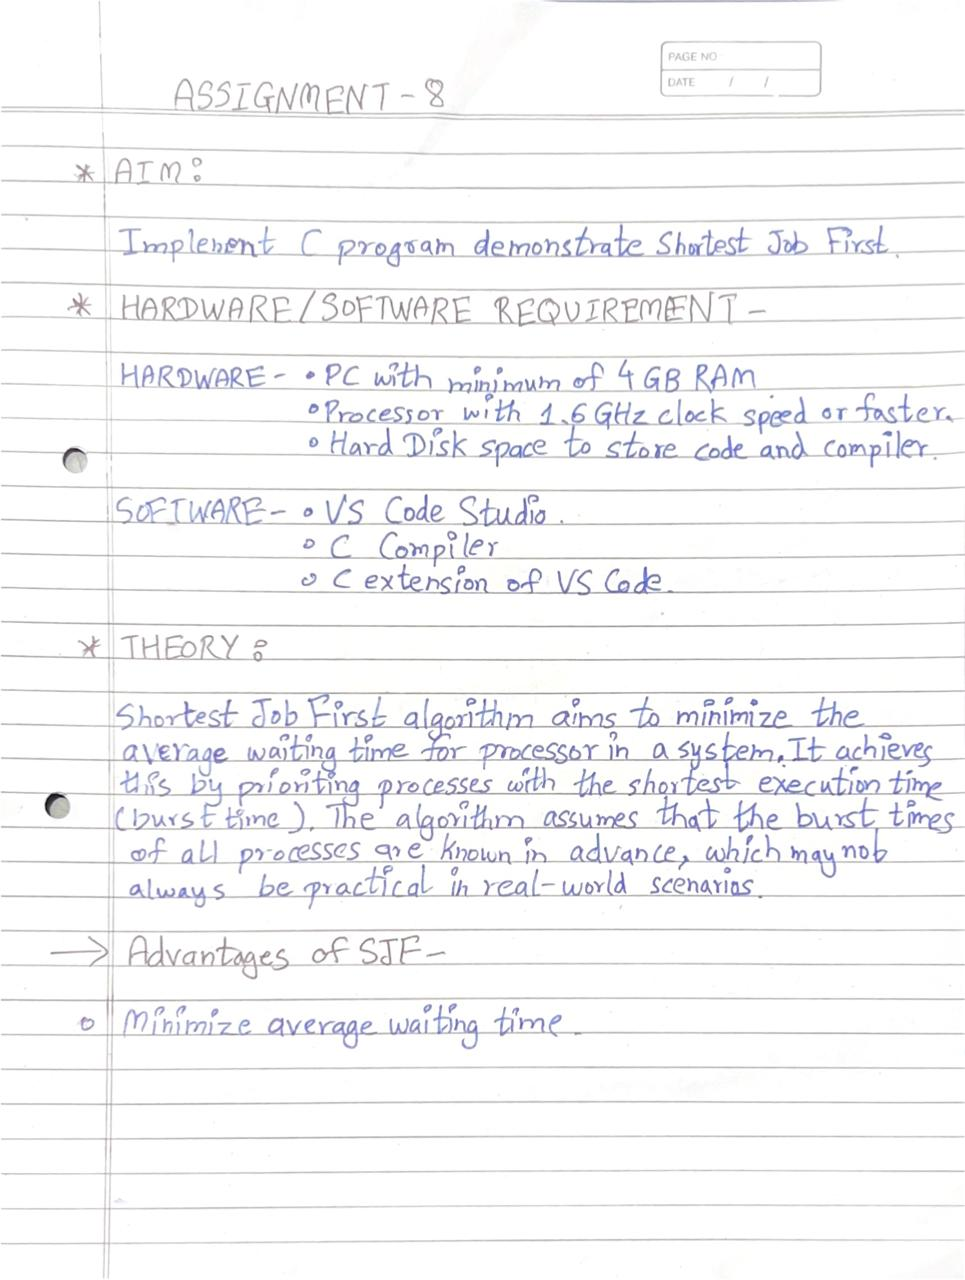 PAGE NO
DATE / /
ASSIGNMENT - 8
* AIM:
Implement C program demonstrate Shortest Job First.
* HARDWARE/SOFTWARE REQUIREMENT -
HARDWARE - • PC with minimum of 4 GB RAM
• Processor with 1.6 GHz clock speed or faster.
• Hard Disk space to store code and compiler.
SOFTWARE - • VS Code Studio.
• C Compiler
• C extension of VS Code.
* THEORY:
Shortest Job First algorithm aims to minimize the
average waiting time for processor in a system. It achieves
this by prioriting processes with the shortest execution time
(burst time). The algorithm assumes that the burst times
of all processes are known in advance, which may not
always be practical in real-world scenarios.
→ Advantages of SJF -
• Minimize average waiting time.